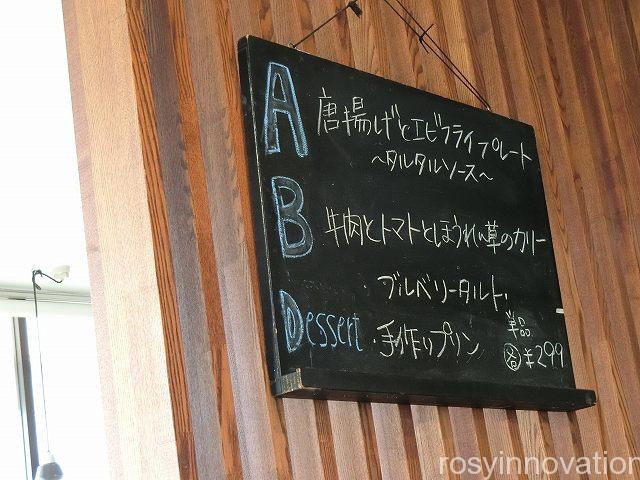 A 唐揚げとエビフライプレート
～タルタルソース～
B 牛肉とトマトとほうれい草のカリー
・ブルベリータルト・
Dessert ・手作りプリン 単品
各 ¥299
rosyinnovation